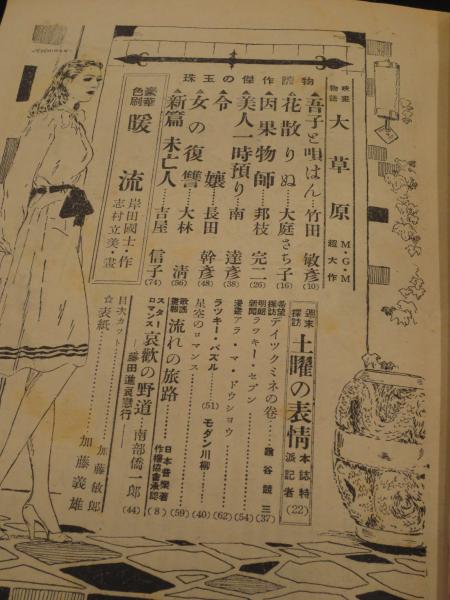 珠玉の傑作読物
映画物語 大草原 M・G・M超大作
吾子と唄はん 竹田敏彦 (10)
花散りぬ 大庭さち子 (16)
因果物師 邦枝完二 (26)
美人一時預り 南達彦 (38)
令嬢 長田幹彦 (48)
女の復讐 大林清 (56)
新篇未亡人 吉屋信子 (74)
豪華色刷 暖流 岸田國士・作 志村立美・畫
週末探訪 土曜の表情 本誌特派記者 (22)
希望探訪 デイツクミネの巻 谷競三 (37)
明朗新聞 ラツキー・セブン (54)
漫畫 アラ・マ・ドウシヨウ (62)
ラツキー・パズル (51) モダン川柳 (40)
星空のロマンス (59)
歌謠畫報 流れの旅路 日本音樂著作權協會承認 (8)
スターロマンス 哀歡の野道 藤田進哀戀行 南部僑一郎 (44)
目次カツト 加藤敏郎
☆表紙 加藤義雄